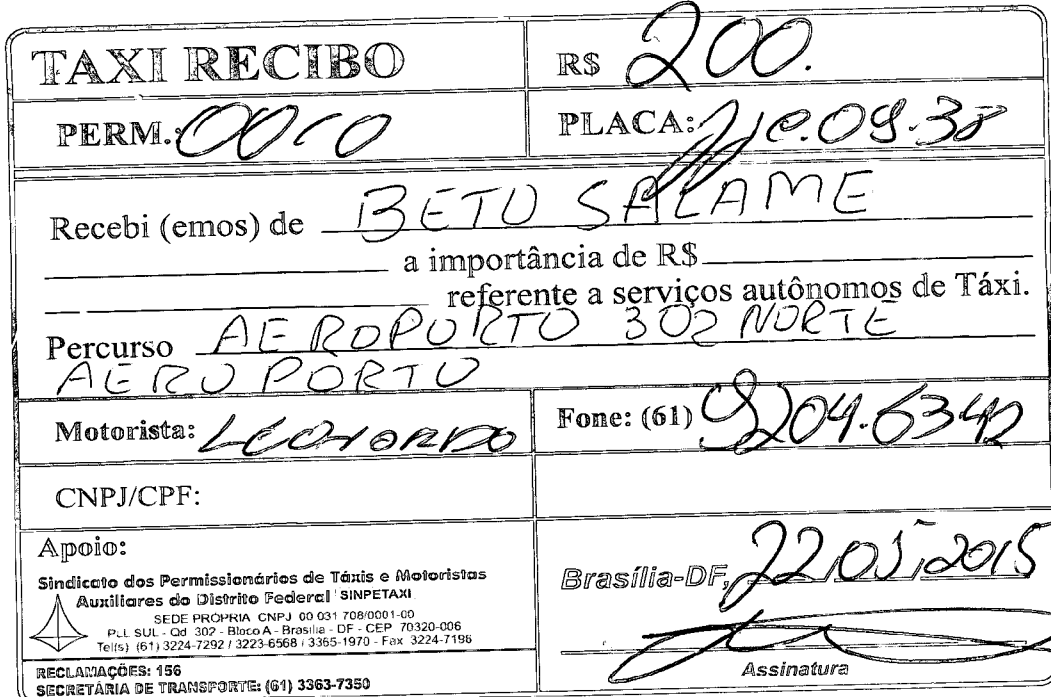 TAXI RECIBO R$ 200.
PERM.: 0010 PLACA: JJE.09.38
Recebi (emos) de BETO SALAME
a importância de R$
referente a serviços autônomos de Táxi.
Percurso AEROPORTO 302 NORTE
AEROPORTO
Motorista: LEONARDO Fone: (61) 9204.6342
CNPJ/CPF:
Apoio:
Sindicato dos Permissionários de Táxis e Motoristas
Auxiliares do Distrito Federal SINPETAXI
SEDE PROPRIA CNPJ 00 031 708/0001-00
PLL SUL - Qd 302 - Bloco A - Brasília - DF - CEP 70320-006
Tel(s) (61) 3224-7292 / 3223-6568 / 3365-1970 - Fax 3224-7196
RECLAMAÇÕES: 156
SECRETÁRIA DE TRANSPORTE: (61) 3363-7350
Brasília-DF, 22,05,2015
Assinatura